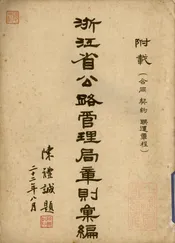 附載
(合同 契約 聯運章程)
浙江省公路管理局章則彙編
陳體誠題
二十二年八月